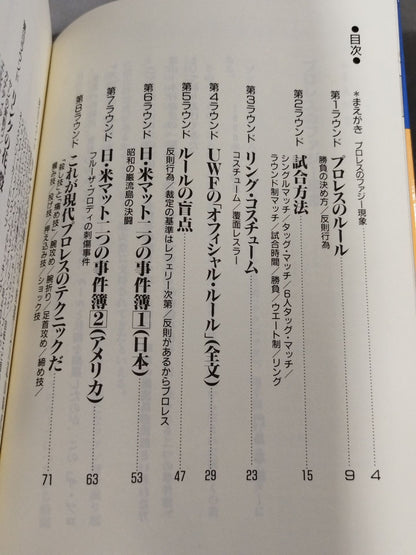 ●目次●
＊まえがき　プロレスのファジー現象　4
第1ラウンド　プロレスのルール　9
勝負の決め方／反則行為
第2ラウンド　試合方法　15
シングルマッチ／タッグ・マッチ／6人タッグ・マッチ／
ラウンド制マッチ／試合時間／勝負／ウエート制／リング
第3ラウンド　リング・コスチューム　23
コスチューム／覆面レスラー
第4ラウンド　UWFの「オフィシャル・ルール」(全文)　29
第5ラウンド　ルールの盲点　47
反則行為／裁定の基準はレフェリー次第／反則があるからプロレス
第6ラウンド　日・米マット、二つの事件簿1(日本)　53
昭和の巌流島の決闘
第7ラウンド　日・米マット、二つの事件簿2(アメリカ)　63
ブルーザ・ブロディの刺傷事件
第8ラウンド　これが現代プロレスのテクニックだ　71
「殺し技」と「痛め技」／腕攻め／腕折り／足首攻め／締め技／
痛み技／投げ技／押え込み技／ショック技